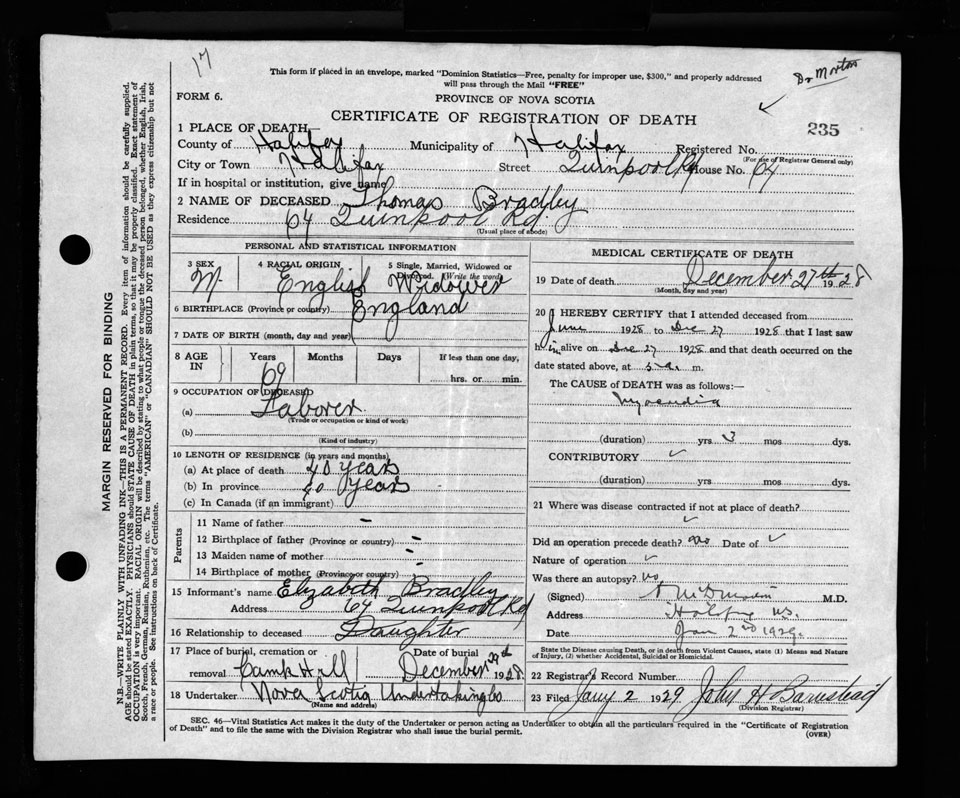 17
This form if placed in an envelope, marked "Dominion Statistics—Free, penalty for improper use, $300," and properly addressed
will pass through the Mail "FREE"
Dr Morton
FORM 6.
PROVINCE OF NOVA SCOTIA
CERTIFICATE OF REGISTRATION OF DEATH
235
1 PLACE OF DEATH,
County of Halifax Municipality of Halifax Registered No.
(For use of Registrar General only)
City or Town Halifax Street Quinpool Rd House No. 64
If in hospital or institution, give name
2 NAME OF DECEASED Thomas Bradley
Residence 64 Quinpool Rd.
(Usual place of abode)
PERSONAL AND STATISTICAL INFORMATION
3 SEX M. 4 RACIAL ORIGIN English 5 Single, Married, Widowed or Divorced. (Write the word) Widower
6 BIRTHPLACE (Province or country) England
7 DATE OF BIRTH (month, day and year)
8 AGE IN Years 69 Months Days If less than one day, hrs. or min.
9 OCCUPATION OF DECEASED
(a) Laborer
(Trade or occupation or kind of work)
(b)
(Kind of industry)
10 LENGTH OF RESIDENCE (in years and months)
(a) At place of death 40 years
(b) In province 40 years
(c) In Canada (if an immigrant)
Parents
11 Name of father —
12 Birthplace of father (Province or country) —
13 Maiden name of mother —
14 Birthplace of mother (Province or country) —
15 Informant's name Elizabeth Bradley
Address 64 Quinpool Rd
16 Relationship to deceased Daughter
17 Place of burial, cremation or removal Camp Hill Date of burial December 29th 1928
18 Undertaker Nova Scotia Undertaking Co
(Name and address)
MEDICAL CERTIFICATE OF DEATH
19 Date of death December 27th 1928
(Month, day and year)
20 I HEREBY CERTIFY that I attended deceased from
June 1928 to Dec 27 1928 that I last saw
him alive on Dec 27 1928 and that death occurred on the
date stated above, at 5 a. m.
The CAUSE of DEATH was as follows:—
(duration) yrs 3 mos dys.
CONTRIBUTORY ✓
(duration) yrs. mos. dys.
21 Where was disease contracted if not at place of death?
✓
Did an operation precede death? no Date of ✓
Nature of operation ✓
Was there an autopsy? no
(Signed) M.D.
Address Halifax N.S.
Date Jan 2nd 1929.
State the Disease causing Death, or in Death from Violent Causes, state (1) Means and Nature of Injury, (2) whether Accidental, Suicidal or Homicidal.
22 Registrar's Record Number
23 Filed Jany 2 1929 John H Barnstead
(Division Registrar)
SEC. 46—Vital Statistics Act makes it the duty of the Undertaker or person acting as Undertaker to obtain all the particulars required in the "Certificate of Registration
of Death" and to file the same with the Division Registrar who shall issue the burial permit.
(OVER)
MARGIN RESERVED FOR BINDING
N.B.—WRITE PLAINLY WITH UNFADING INK—THIS IS A PERMANENT RECORD. Every item of information should be carefully supplied.
AGE should be stated EXACTLY. PHYSICIANS should STATE CAUSE OF DEATH in plain terms, so that it may be properly classified. Exact statement of
OCCUPATION is very important. RACIAL ORIGIN will be described by stating to what people or tongue the deceased person belonged, whether English, Irish,
Scotch, French, German, Russian, Ruthenian, etc. The terms "AMERICAN" or "CANADIAN" SHOULD NOT BE USED as they express citizenship but not
a race or people. See instructions on back of Certificate.